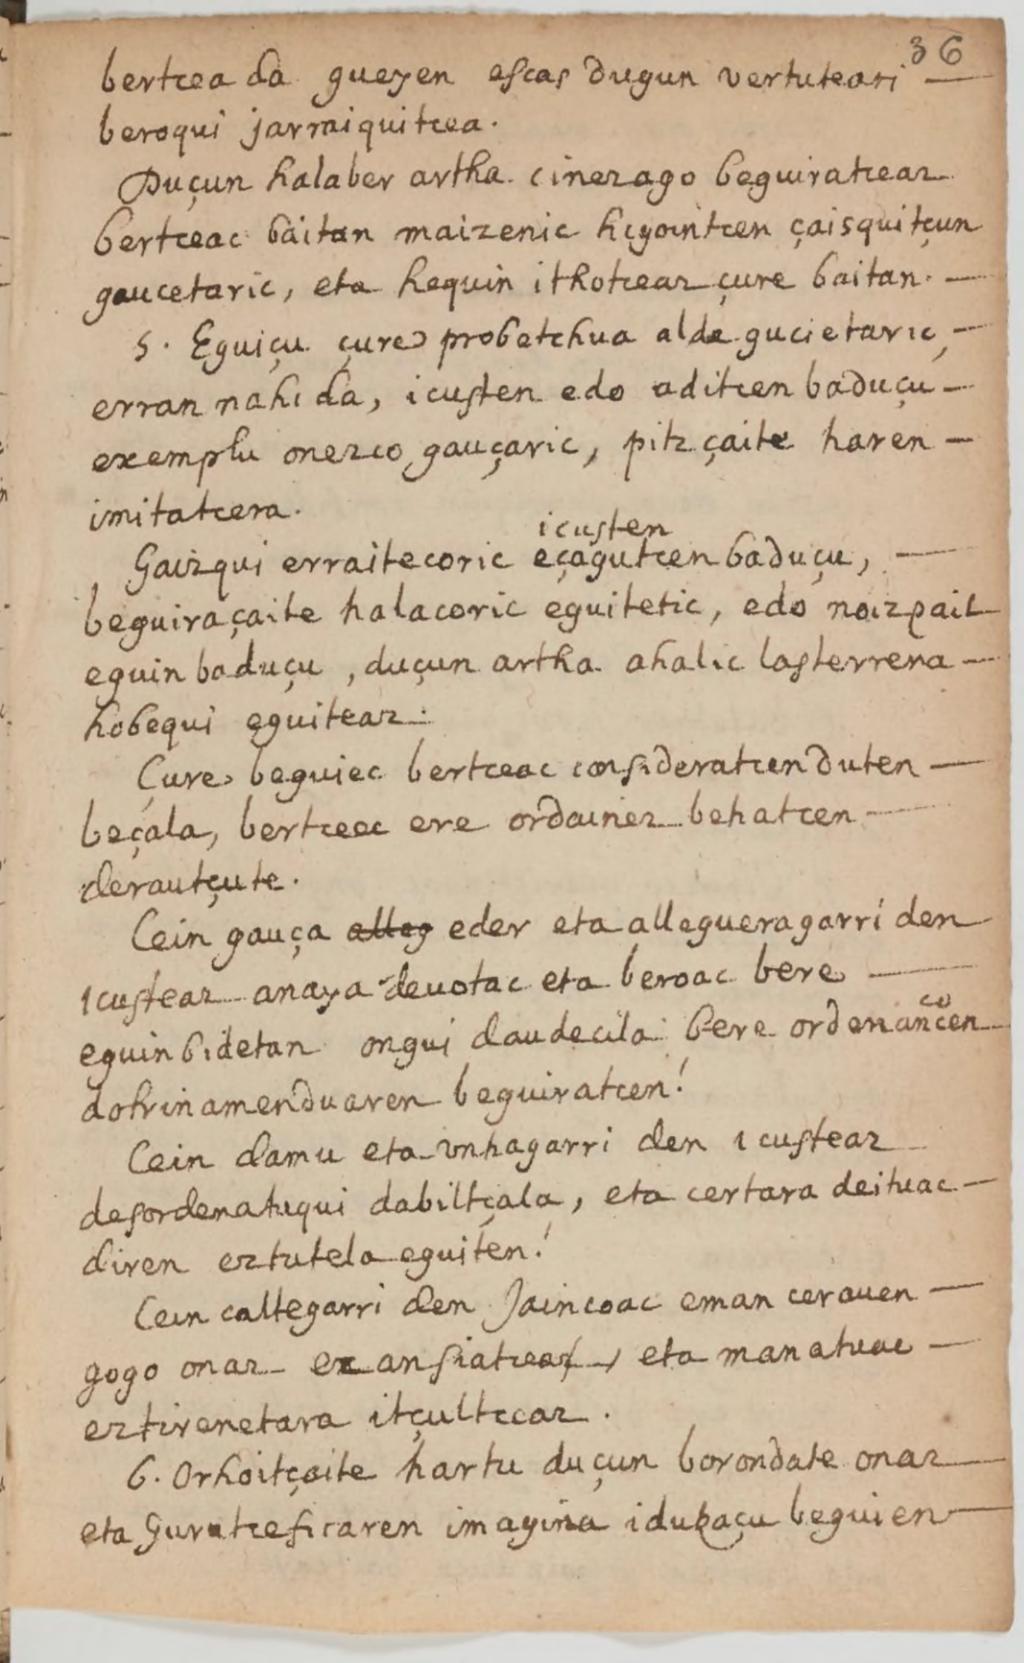 36
bertcea da gueyen escas dugun vertuteari
beroqui jarraiquitcea.
Duçun halaber artha cinezago beguiratceaz
bertceac baitan maizenic higointcen çaisquitçun
gaucetaric, eta hequin ithotceaz çure baitan.
5. Eguiçu çure probetchua alde gucietaric,
erran nahi da, icusten edo aditcen baduçu
exemplu onezco gauçaric, pitz çaite haren
imitatcera.
icusten
Gaizqui erraitecoric eçagutcen baduçu,
beguira çaite halacoric eguitetic, edo noizpait
eguin baduçu, duçun artha ahalic lasterrena
hobequi eguiteaz.
Çure beguiec bertceac consideratcen duten
beçala, bertceec ere ordainez behatcen
derautçute.
Cein gauça alleg eder eta allegueragarri den
icusteaz anaya devotac eta beroac bere
eguinbidetan ongui daudecila bere ordenancen
co
dotrinamenduaren beguiratcen!
Cein damu eta unhagarri den icusteaz
desordenatuqui dabiltçala, eta certara deituac
diren eztutela eguiten!
Cein caltegarri den Jaincoac eman cerauen
gogo onaz ez ansiatceaz, eta manatuac
eztirenetara itçultceaz.
6. Orhoitçaite hartu duçun borondate onaz
eta Gurutceficaren imagina iduzaçu beguien